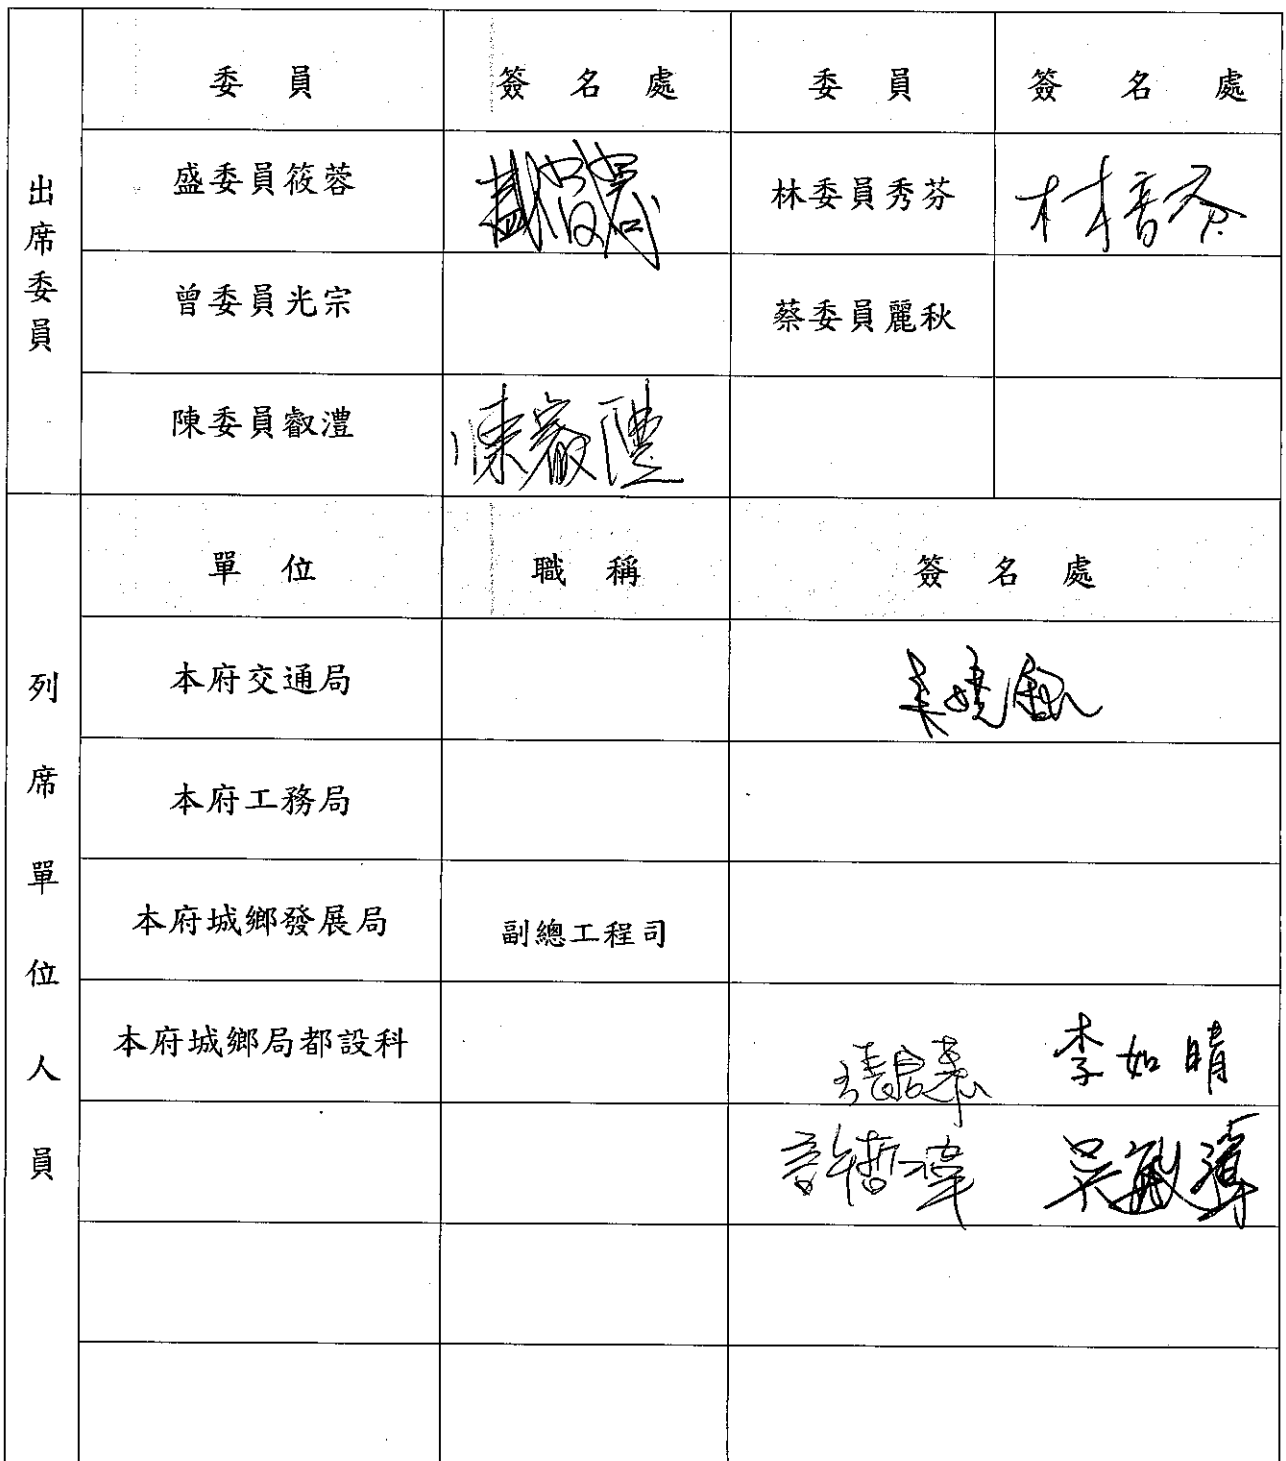 出席委員
委員 簽名處 委員 簽名處
盛委員筱蓉 盛筱蓉 林委員秀芬 林秀芬
曾委員光宗 蔡委員麗秋
陳委員叡澧 陳叡澧
列席單位人員
單位 職稱 簽名處
本府交通局
本府工務局
本府城鄉發展局 副總工程司
本府城鄉局都設科 李如晴
許哲瑋